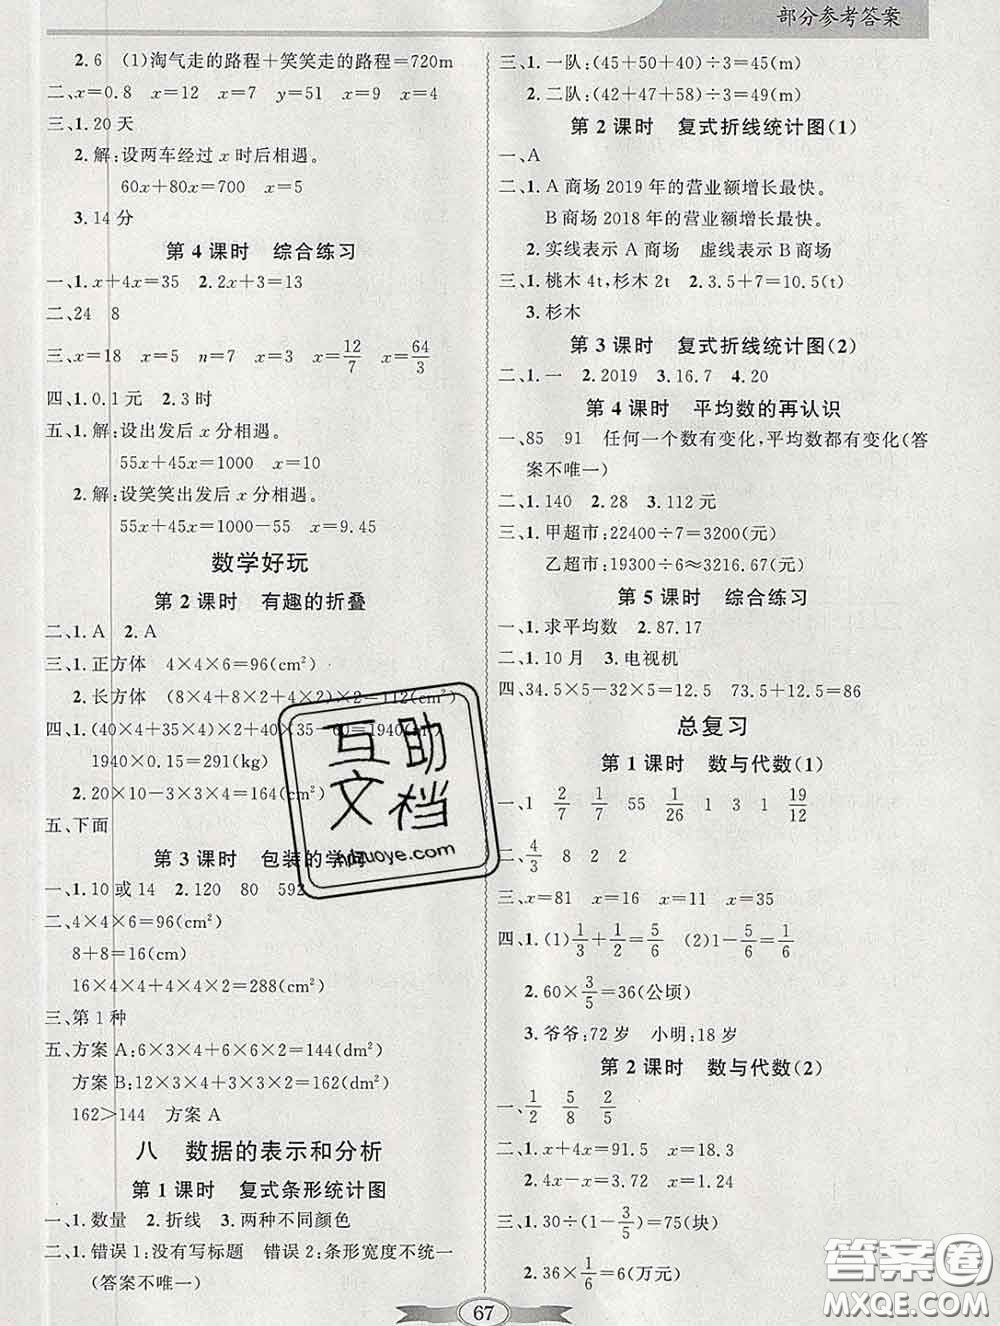 部分参考答案
2.6 (1)淘气走的路程+笑笑走的路程=720m
二、x=0.8 x=12 x=7 y=51 x=9 x=4
三、1.20天
2.解:设两车经过x时后相遇。
60x+80x=700 x=5
3.14分
第4课时 综合练习
一、1.x+4x=35 2.2x+3=13
二、24 8
三、x=18 x=5 n=7 x=12/7 x=64/3
四、1.0.1元 2.3时
五、1.解:设出发后x分相遇。
55x+45x=1000 x=10
2.解:设笑笑出发后x分相遇。
55x+45x=1000-55 x=9.45
数学好玩
第2课时 有趣的折叠
二、1.A 2.A
三、1.正方体 4×4×6=96(cm²)
2.长方体 (8×4+8×2+4×2)×2=112(cm²)
四、1.(40×4+35×4)×2+40×35-60=1940(㎡)
1940×0.15=291(kg)
2.20×10-3×3×4=164(cm²)
五、下面
第3课时 包装的学问
一、1.10或14 2.120 80 592
二、4×4×6=96(cm²)
8+8=16(cm)
16×4×4+4×4×2=288(cm²)
三、第1种
五、方案A:6×3×4+6×6×2=144(dm²)
方案B:12×3×4+3×3×2=162(dm²)
162>144 方案A
八 数据的表示和分析
第1课时 复式条形统计图
一、1.数量 2.折线 3.两种不同颜色
二、1.错误1:没有写标题 错误2:条形宽度不统一
(答案不唯一)
三、1.一队:(45+50+40)÷3=45(m)
2.二队:(42+47+58)÷3=49(m)
第2课时 复式折线统计图(1)
一、A
二、1.A商场2019年的营业额增长最快。
B商场2018年的营业额增长最快。
2.实线表示A商场 虚线表示B商场
三、1.桃木4t,杉木2t 2.3.5+7=10.5(t)
3.杉木
第3课时 复式折线统计图(2)
二、1.一 2.2019 3.16.7 4.20
第4课时 平均数的再认识
一、85 91 任何一个数有变化,平均数都有变化(答
案不唯一)
二、1.140 2.28 3.112元
三、1.甲超市:22400÷7=3200(元)
乙超市:19300÷6≈3216.67(元)
第5课时 综合练习
一、1.求平均数 2.87.17
二、1.10月 3.电视机
四、34.5×5-32×5=12.5 73.5+12.5=86
总复习
第1课时 数与代数(1)
一、1 2/7 1/7 55 1/26 1 3 1 19/12
二、4/3 8 2 2
三、x=81 x=16 x=11 x=5
四、1.(1)1/3+1/2=5/6 (2)1-5/6=1/6
2.60×3/5=36(公顷)
3.爷爷:72岁 小明:18岁
第2课时 数与代数(2)
一、1/2 5/8 2/5
二、1.x+4x=91.5 x=18.3
2.4x-x=3.72 x=1.24
三、1.30÷(1-3/5)=75(块)
2.36×1/6=6(万元)
67
互助
文档
hdzuoye.com
答案圈
MXQE.COM